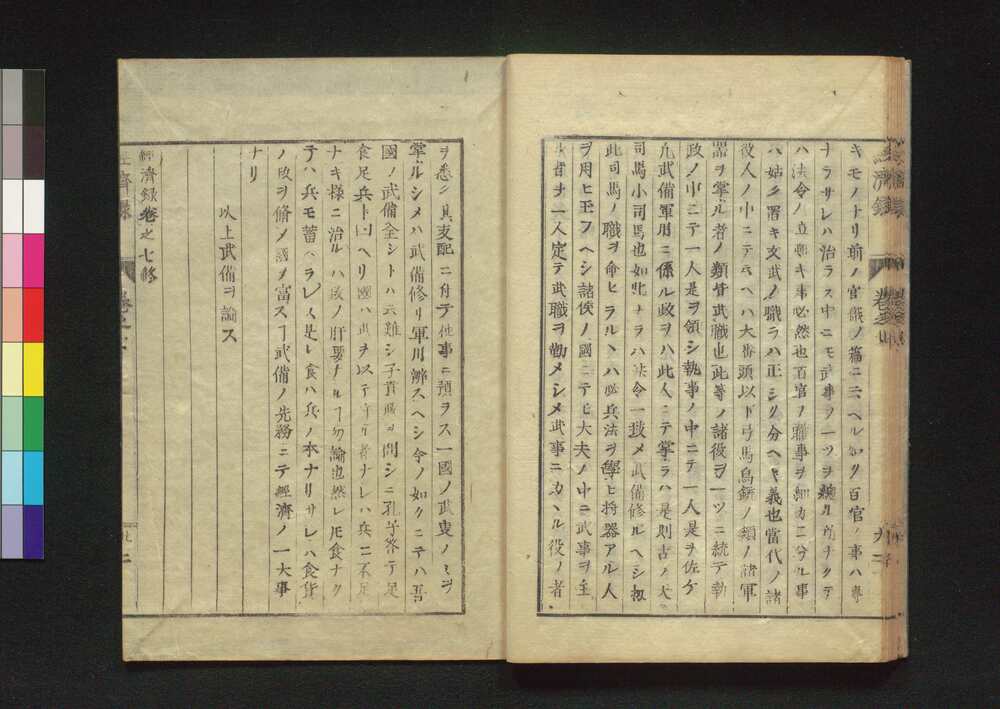 キモノトリ前ノ官職ノ篇ニ云ヘル如ク百官ノ事ハ専
ナラサレハ治ラス中ニモ武事ヲ一ツヲ総ルカナクテ
ハ法令ノ立難キ事必然也百官ノ職事ヲ細カニ分ル事
ハ姑ク置キ文武ノ職ヲハ正シク分ヘキ義也當代ノ諸
役人ノ中ニテ云ヘハ大番頭以下弓馬鳥銃ノ類ノ諸軍
器ヲ掌ル者ノ類皆武職也此等ノ諸役ヲ一ツニ統テ執
政ノ中ニテ一人是ヲ領シ執事ノ中ニテ一人是ヲ佐ケ
凡武備軍用ニ係ル政ヲハ此人ニテ掌ラハ是則古ノ大
司馬小司馬也如此ナラハ法令一致メ武備修ルヘシ扨
此司馬ノ職ヲ命セラルヽハ必兵法ヲ學ヒ将器アル人
ヲ用ヒ玉フヘシ諸侯ノ國ニテモ大夫ノ中ニ武事ヲ主
ル者ヲ一人定テ武職ヲ勤メシメ武事ニカヽル役ノ者
ヲ悉ク其支配ニ付テ他事ニ預ラス一國ノ武叓ノミヲ
掌ルシメハ武備修リ軍用辨スヘシ今ノ如クニテハ吾
國ノ武備全シトハ云難シ子貢政ヲ問シニ孔子答テ足
食足兵ト曰ヘリ國ハ兵ヲ以テ守ル者ナレハ兵ニ不足
ナキ様ニ治ルハ政ノ肝要ナルヿ勿論也然レ𪜈食ナク
テハ兵モ蓄ヘラレス是レ食ハ兵ノ本ナリサレハ食貨
ノ政ヲ脩メ國ヲ富スヿ武備ノ先務ニテ經濟ノ一大事
ナリ
以上武備ヲ論ス
經濟録巻之七終